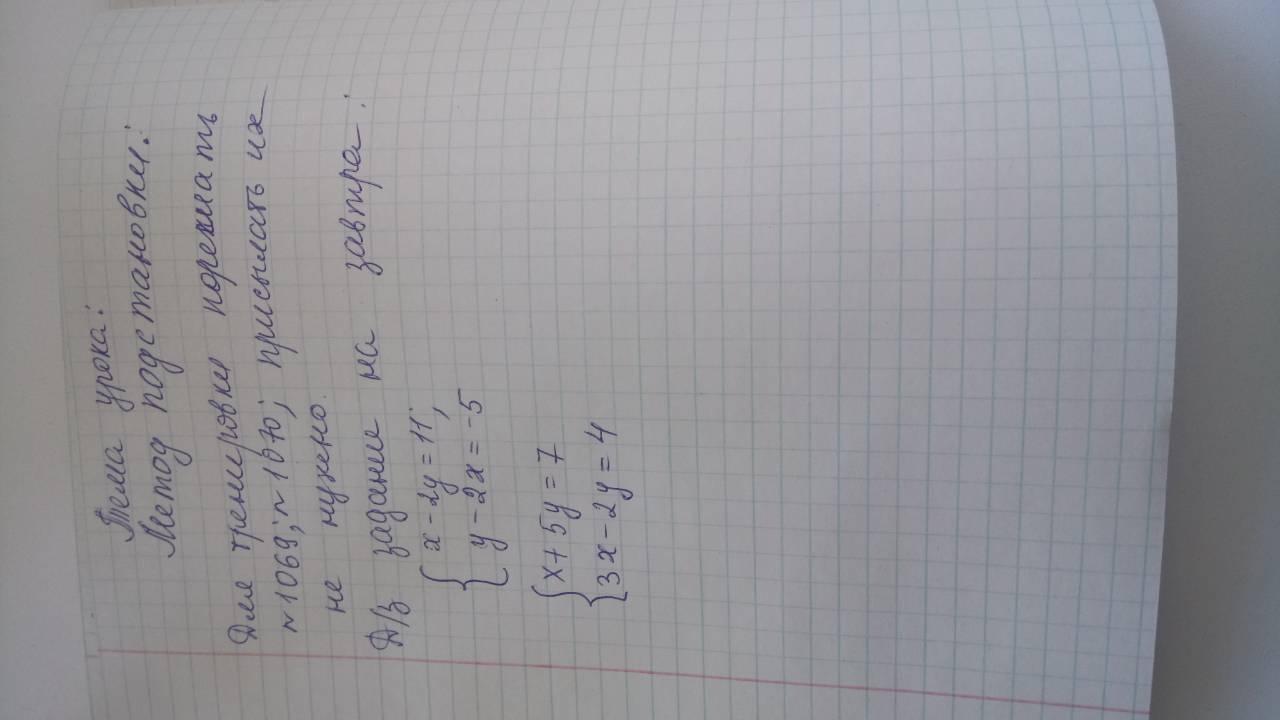 Тема урока:
Метод подстановки:
Для тренировки порешать
№1069; №1070; присылать их
не нужно.
Д/З задание на завтра:
{ x - 2y = 11;
{ y - 2x = -5
{ x + 5y = 7
{ 3x - 2y = 4